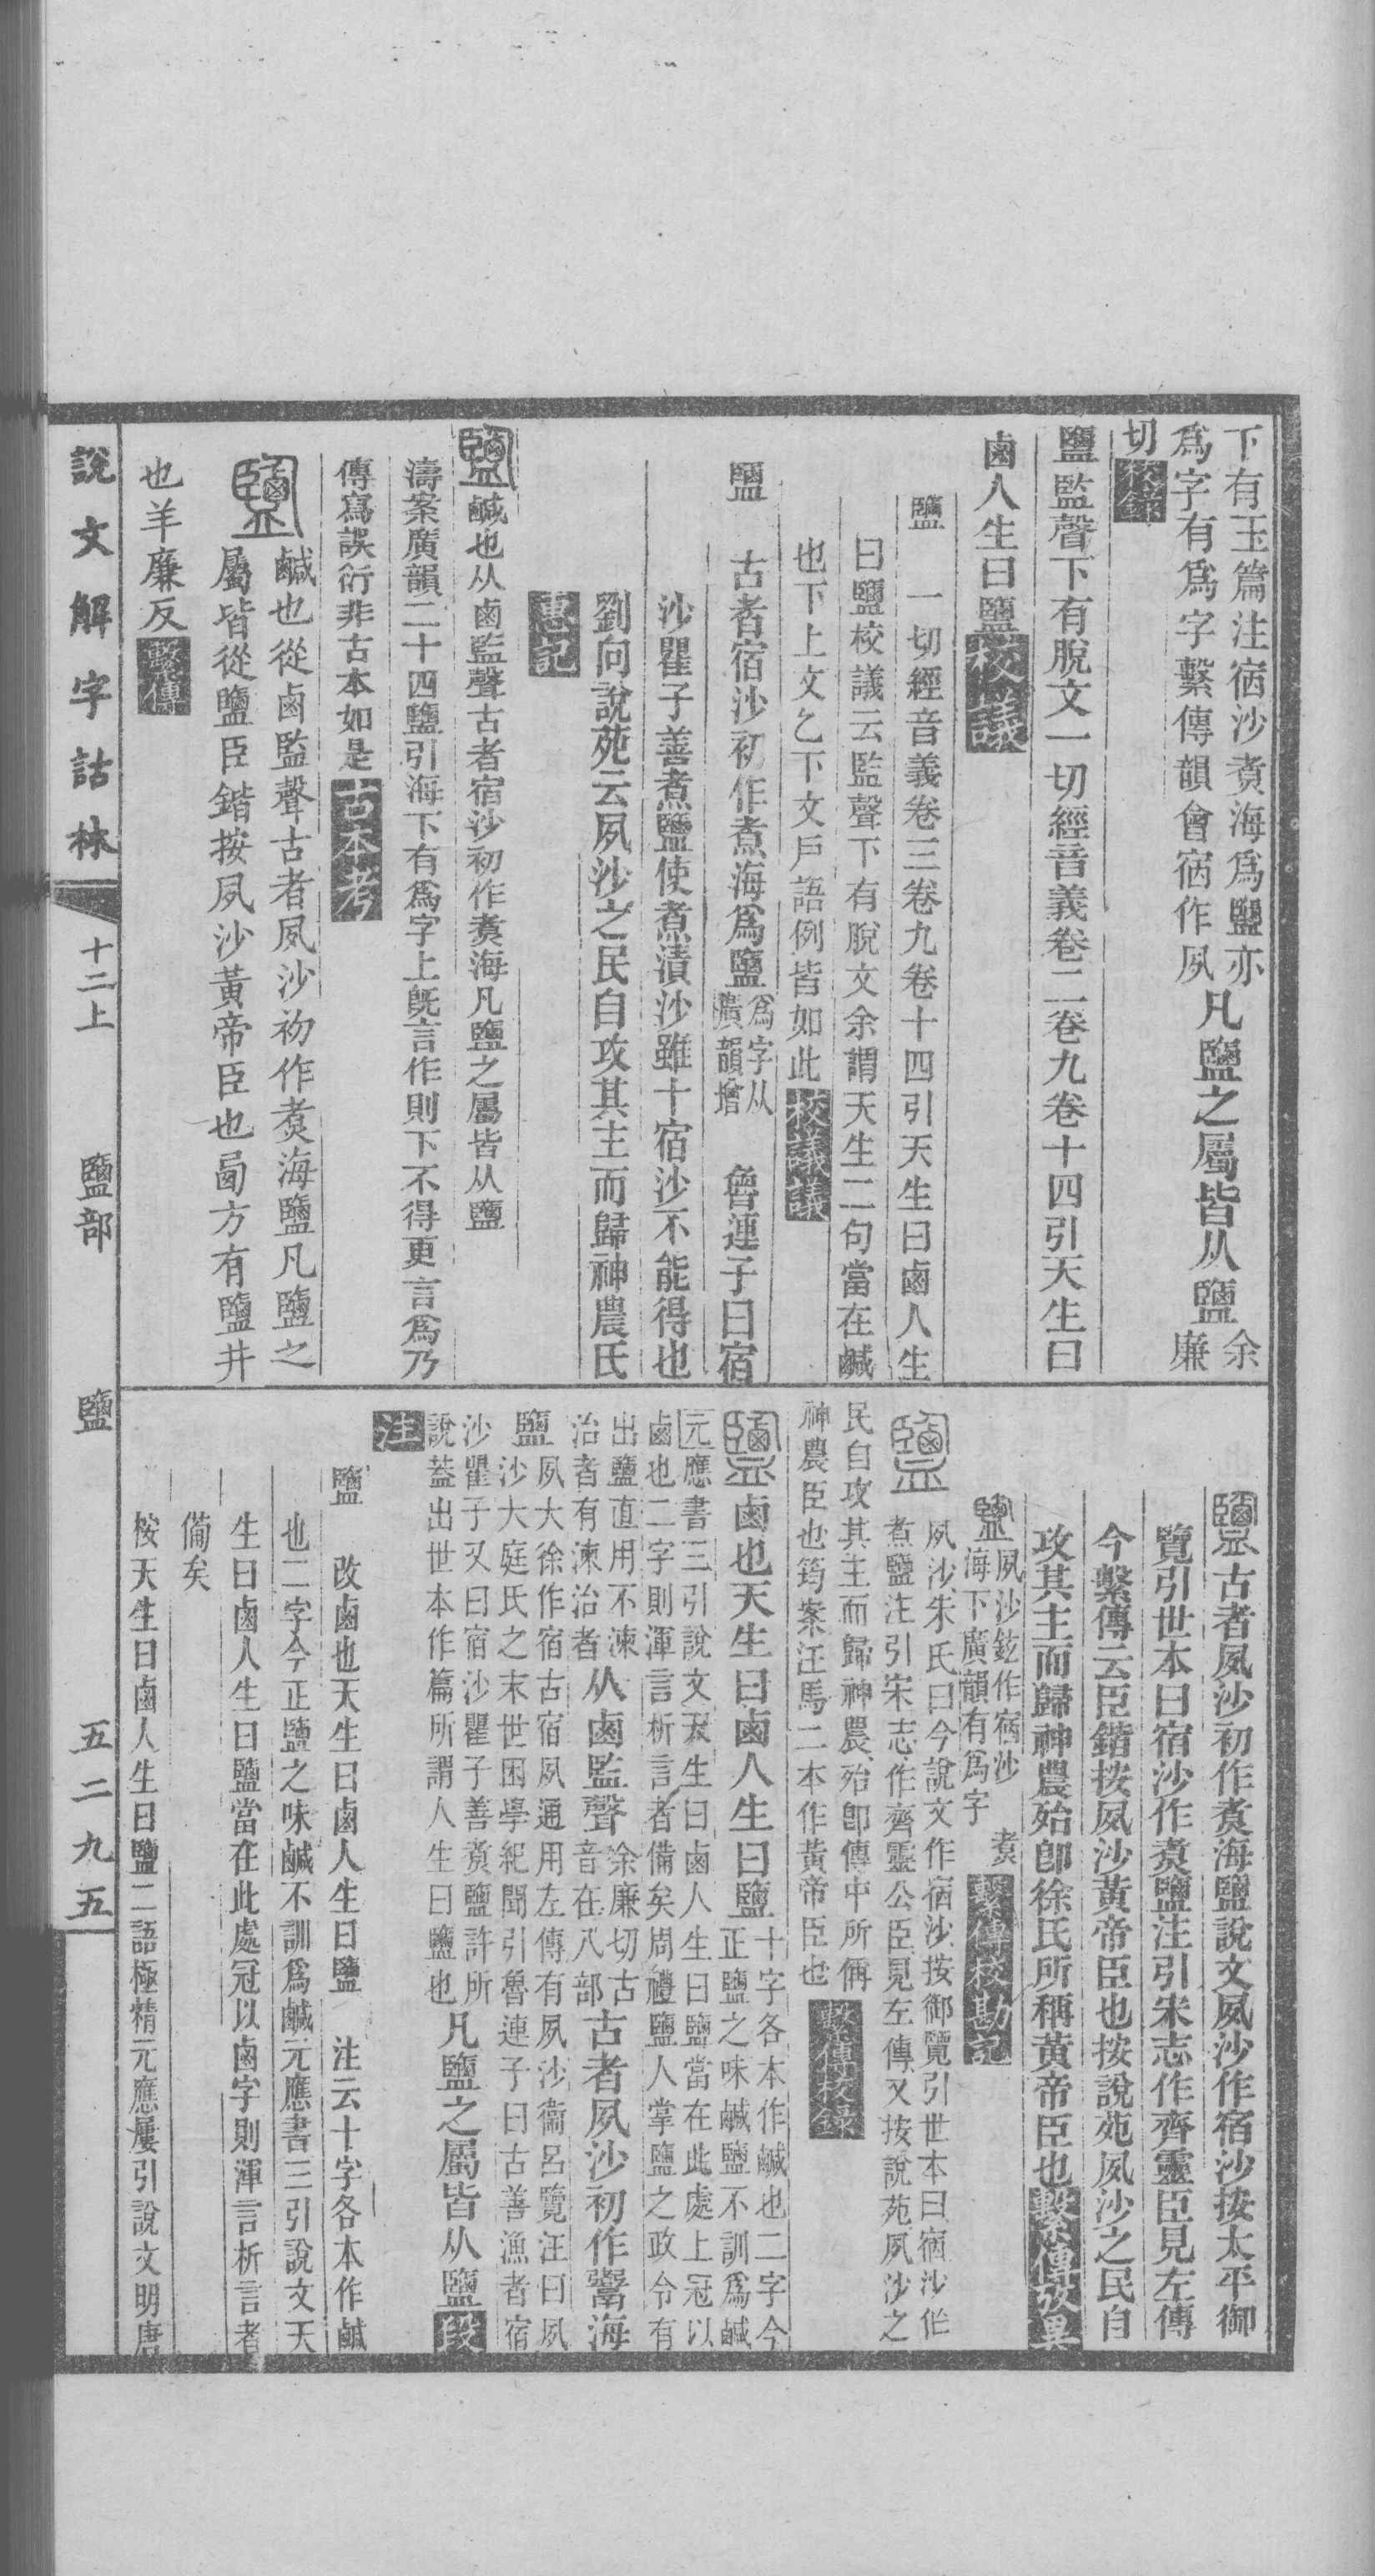 下有玉篇注宿沙煑海爲鹽亦
爲字有爲字繫傳韻會宿作夙
凡鹽之屬皆从鹽
余廉
切
校錄
鹽監聲下有脫文一切經音義卷二卷九卷十四引天生曰
鹵人生曰鹽校議
鹽 一切經音義卷三卷九卷十四引天生曰鹵人生
曰鹽校議云監聲下有脫文余謂天生二句當在鹹
也下上文乞下文戶語例皆如此校議議
鹽 古者宿沙初作煮海爲鹽
爲字从
廣韻增
魯連子曰宿
沙瞿子善煮鹽使煮漬沙雖十宿沙不能得也
劉向說苑云夙沙之民自攻其主而歸神農氏
惠記
鹽鹹也从鹵監聲古者宿沙初作煑海凡鹽之屬皆从鹽
濤案廣韻二十四鹽引海下有爲字上旣言作則下不得更言爲乃
傳寫誤衍非古本如是古本考
鹽
鹹也從鹵監聲古者夙沙初作煑海鹽凡鹽之
屬皆從鹽臣鍇按夙沙黃帝臣也㔽方有鹽井
也羊廉反繫傳
鹽古者夙沙初作煑海鹽說文夙沙作宿沙按太平御
覽引世本曰宿沙作煑鹽注引宋志作齊靈臣見左傳
今繫傳云臣鍇按夙沙黃帝臣也按說苑夙沙之民自
攻其主而歸神農殆卽徐氏所稱黃帝臣也繫傳攷異
鹽
夙沙鉉作宿沙
海下廣韻有爲字
煑
繫傳校勘記
鹽
夙沙朱氏曰今說文作宿沙按御覽引世本曰宿沙作
煮鹽注引宋志作齊靈公臣見左傳又按說苑夙沙之
民自攻其主而歸神農殆卽傳中所偁
神農臣也筠案汪馬二本作黃帝臣也繫傳校錄
鹽鹵也天生曰鹵人生曰鹽
十字各本作鹹也二字今
正鹽之味鹹鹽不訓爲鹹
元應書三引說文天生曰鹵人生曰鹽當在此處上冠以
鹵也二字則渾言析言者備矣周禮鹽人掌鹽之政令有
出鹽直用不湅
治者有湅治者
从鹵監聲
余廉切古
音在八部
古者夙沙初作鬻海
鹽
夙大徐作宿古宿夙通用左傳有夙沙衞呂覽注曰夙
沙大庭氏之末世困學紀聞引魯連子曰古善漁者宿
沙瞿子又曰宿沙瞿子善煑鹽許所
說蓋出世本作篇所謂人生曰鹽也
凡鹽之屬皆从鹽段
注
鹽 改鹵也天生曰鹵人生曰鹽 注云十字各本作鹹
也二字今正鹽之味鹹不訓爲鹹元應書三引說文天
生曰鹵人生曰鹽當在此處冠以鹵字則渾言析言者
備矣
桉天生曰鹵人生曰鹽二語極精元應屢引說文明唐
說文解字詁林
十二上
鹽部
鹽
五二九五